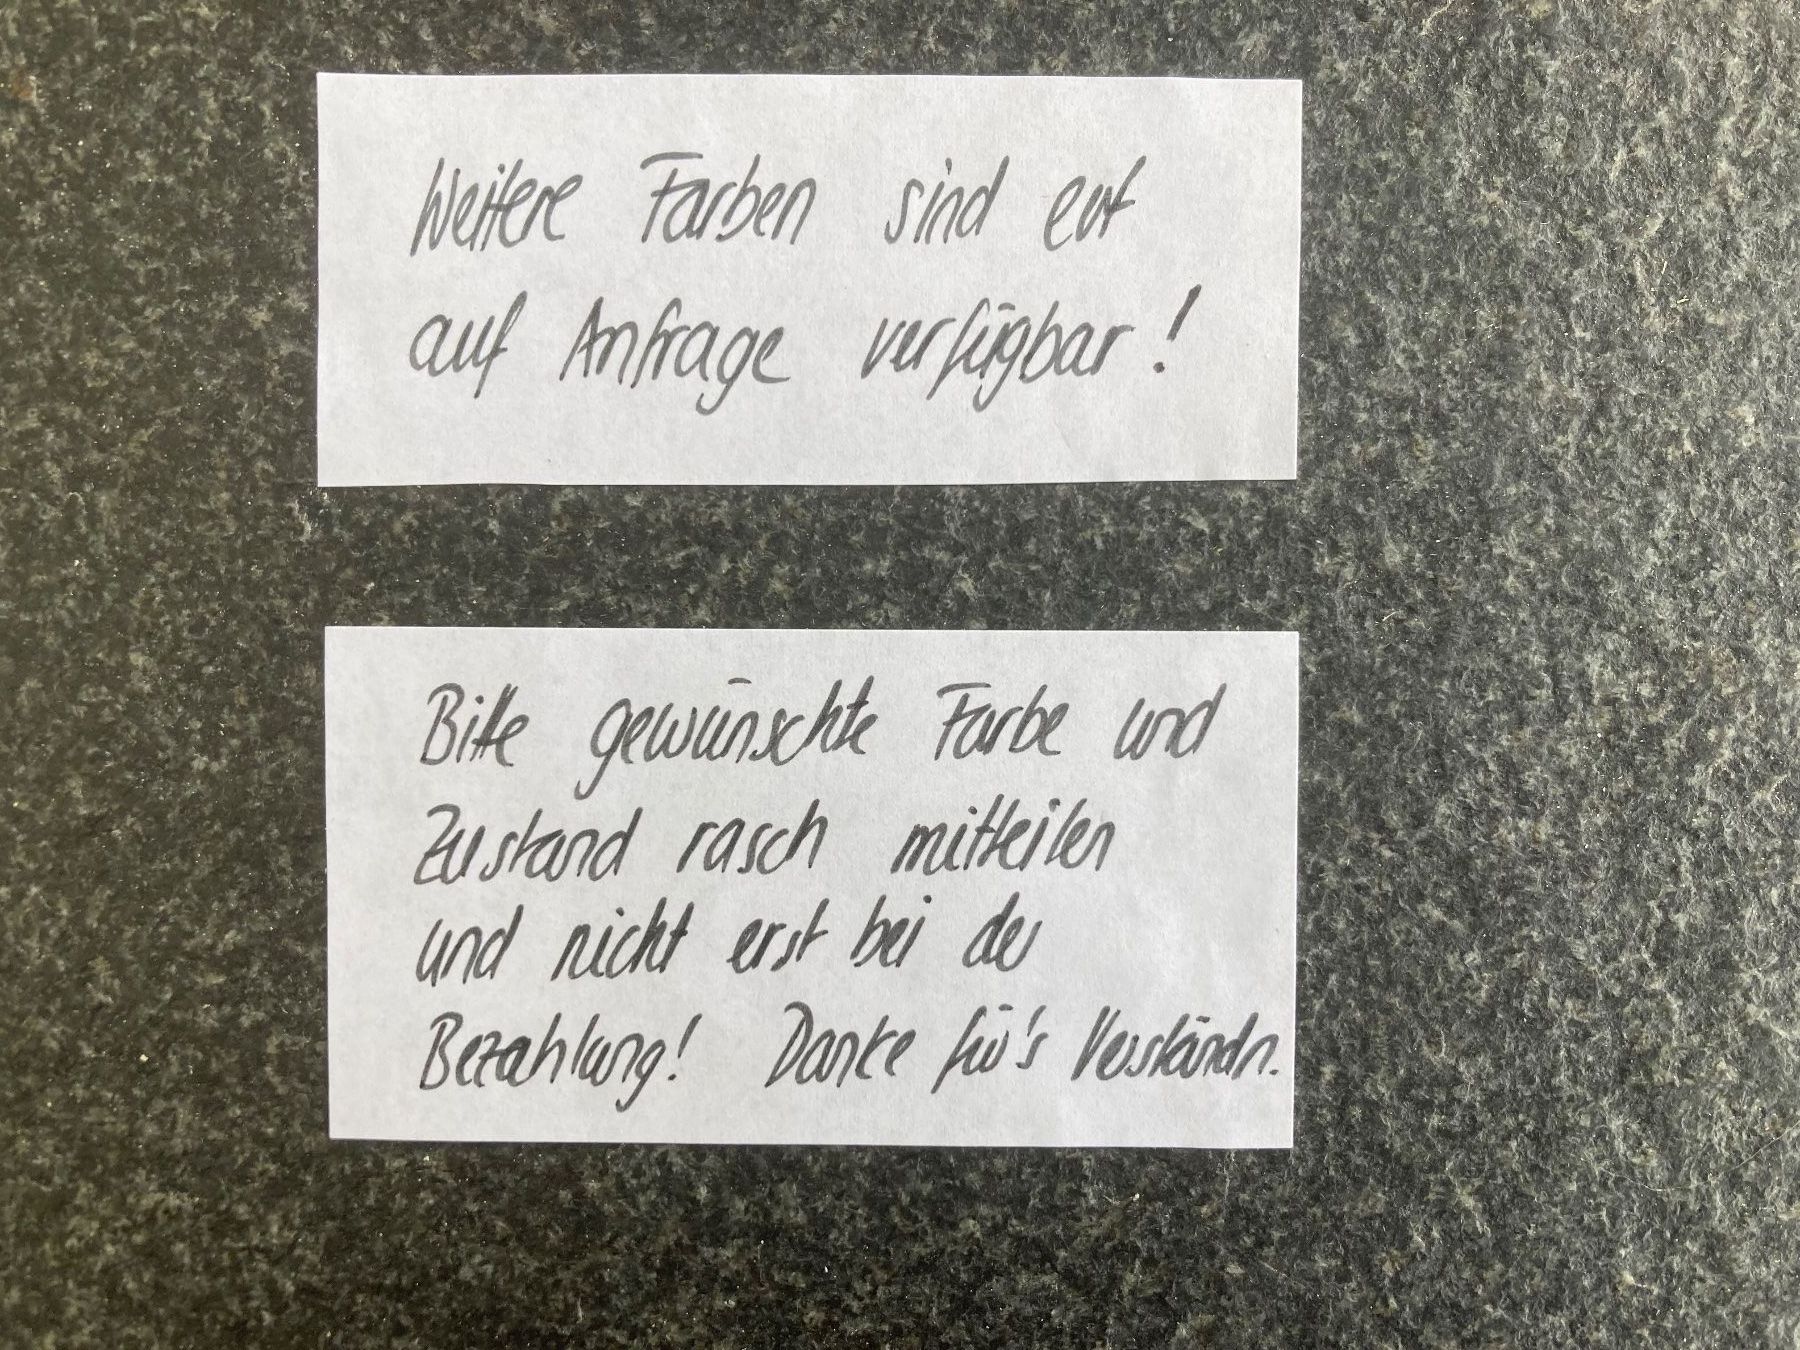 Weitere Farben sind evt
auf Anfrage verfügbar!
Bitte gewünschte Farbe und
Zustand rasch mitteilen
und nicht erst bei der
Bezahlung! Danke für's Verständn.